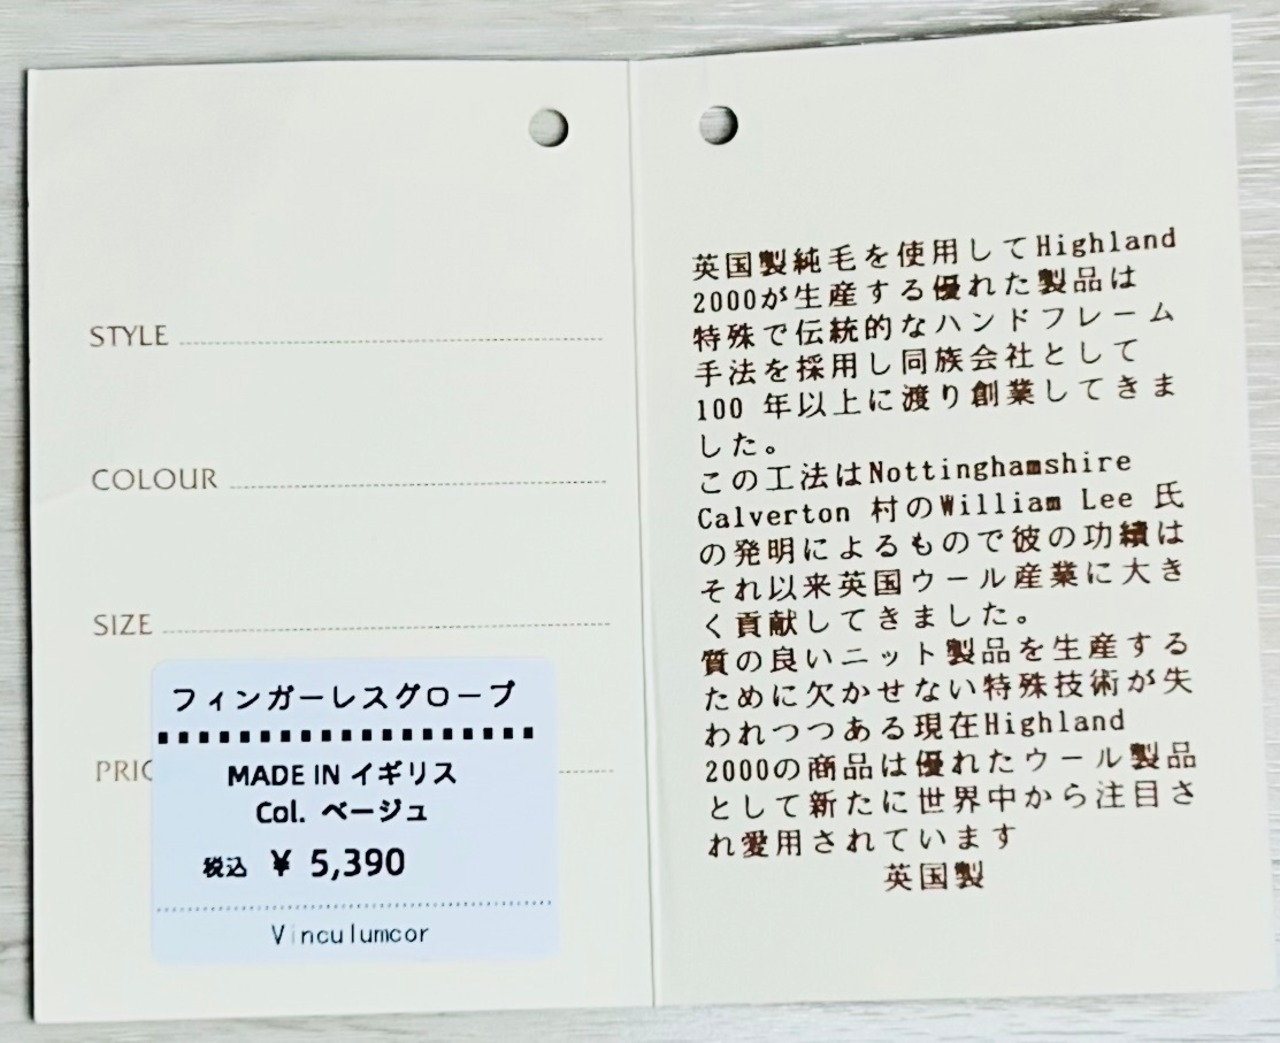 STYLE
COLOUR
SIZE
PRIC
フィンガーレスグローブ
MADE IN イギリス
Col. ベージュ
税込 ¥ 5,390
Vinculumcor
英国製純毛を使用してHighland
2000が生産する優れた製品は
特殊で伝統的なハンドフレーム
手法を採用し同族会社として
100 年以上に渡り創業してきま
した。
この工法はNottinghamshire
Calverton 村のWilliam Lee 氏
の発明によるもので彼の功績は
それ以来英国ウール産業に大き
く貢献してきました。
質の良いニット製品を生産する
ために欠かせない特殊技術が失
われつつある現在Highland
2000の商品は優れたウール製品
として新たに世界中から注目さ
れ愛用されています
英国製